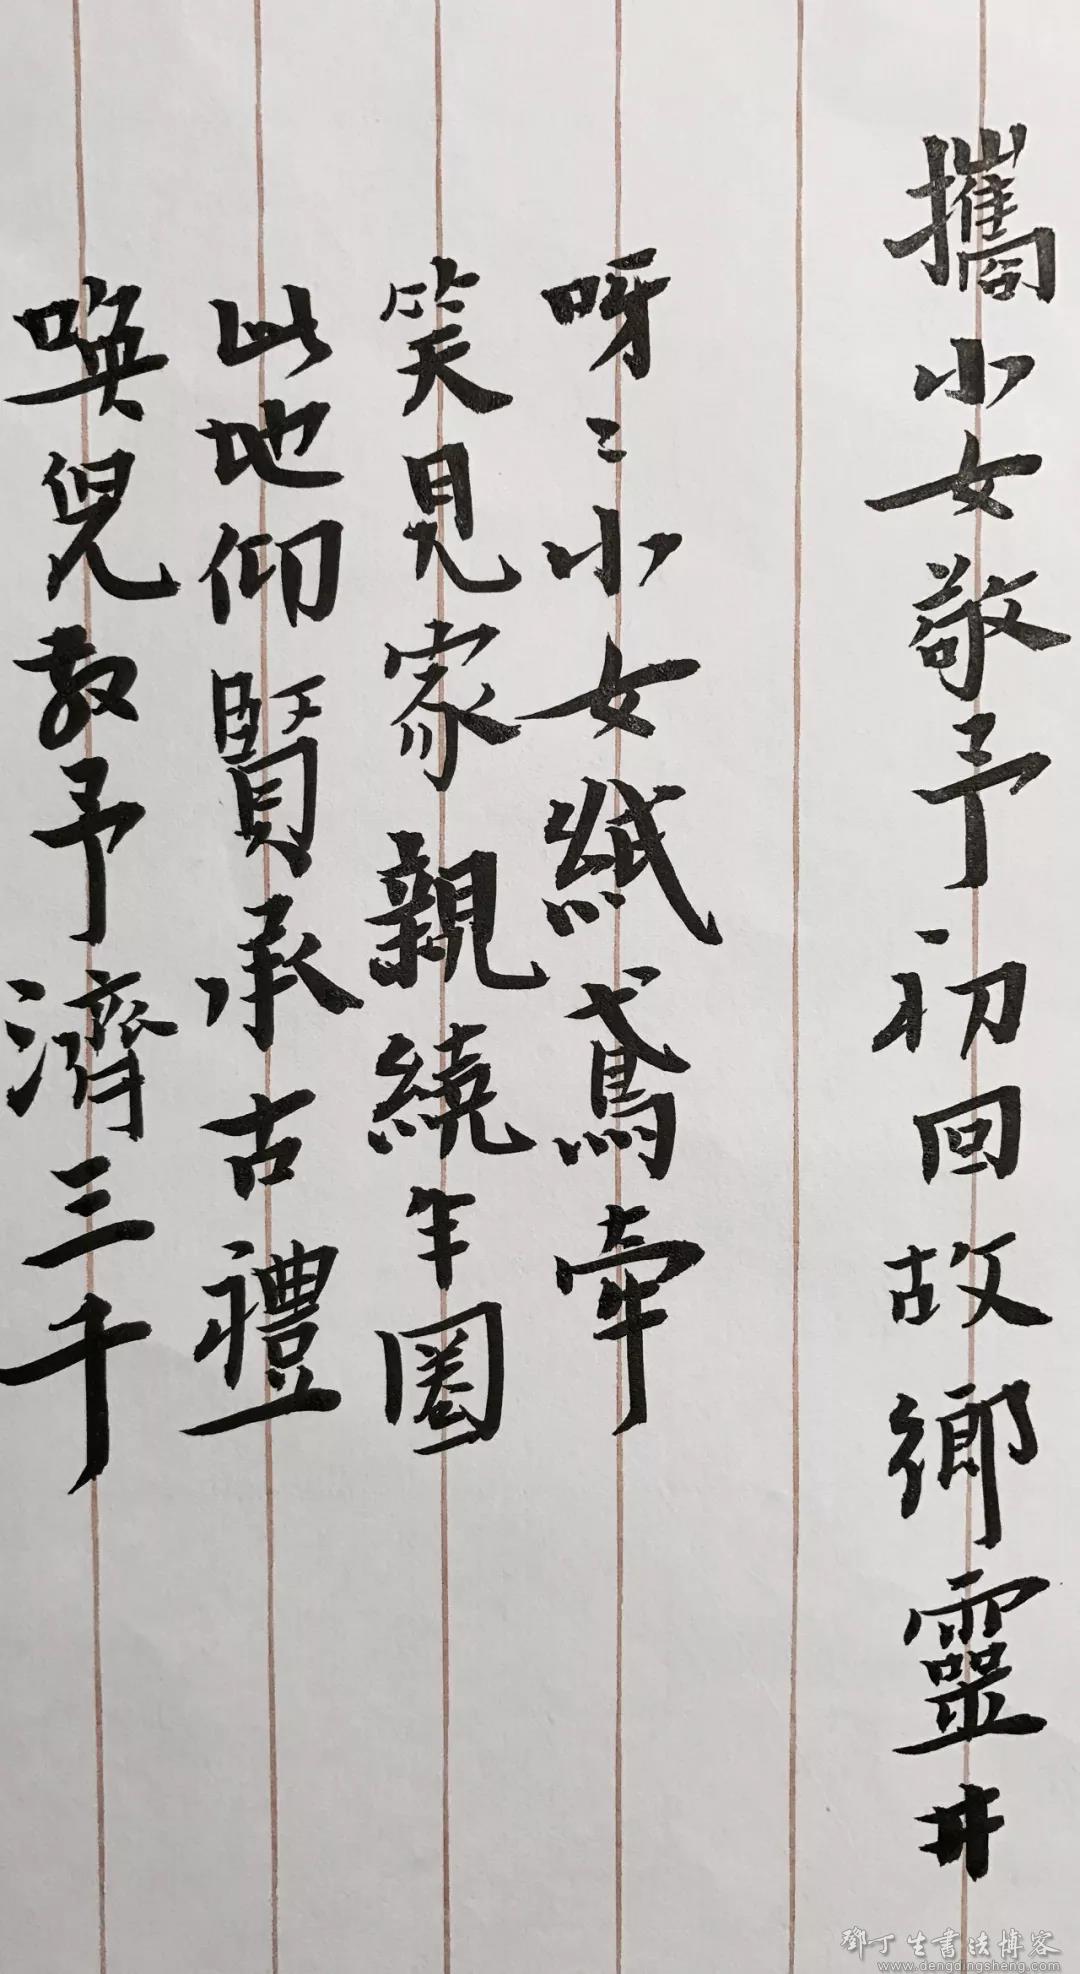 攜小女敬予初回故鄉靈井
呀〻小女紙鳶牽
笑見家親繞半圈
此地仰賢承古禮
喚兒敬予濟三千
鄧丁生書法博客
www.dengdingsheng.com